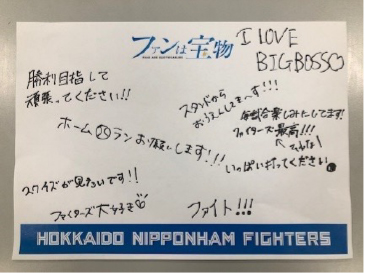 ファンは宝物
I LOVE
BIGBOSS
勝利目指して
頑張ってください!!
スタンドから
おうえんしてま〜す!!!
毎試合楽しみにしてます!
ファイターズ最高!!!
ホームランお願いします!!
いっぱい打ってください
スクイズが見たいです!!
ファイターズ大好き
ファイト!!!
HOKKAIDO NIPPONHAM FIGHTERS